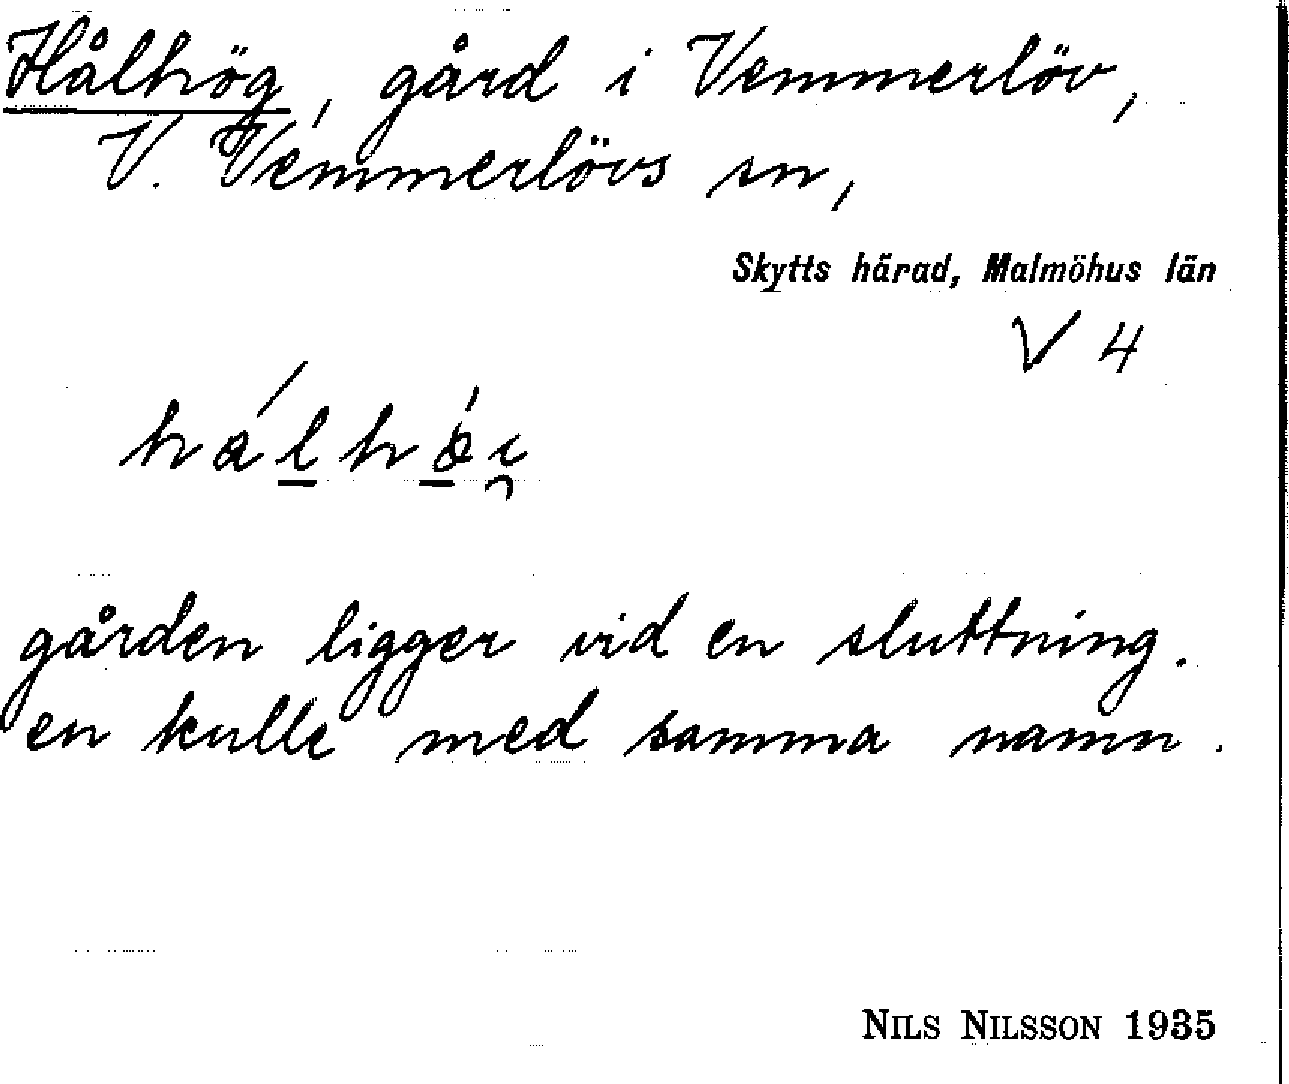 Hålhög, gård i Vemmerlöv,
V. Vemmerlövs sn,
Skytts härad, Malmöhus län
V 4
hálhǿi̯
gården ligger vid en sluttning.
en kulle med samma namn.
NILS NILSSON 1935